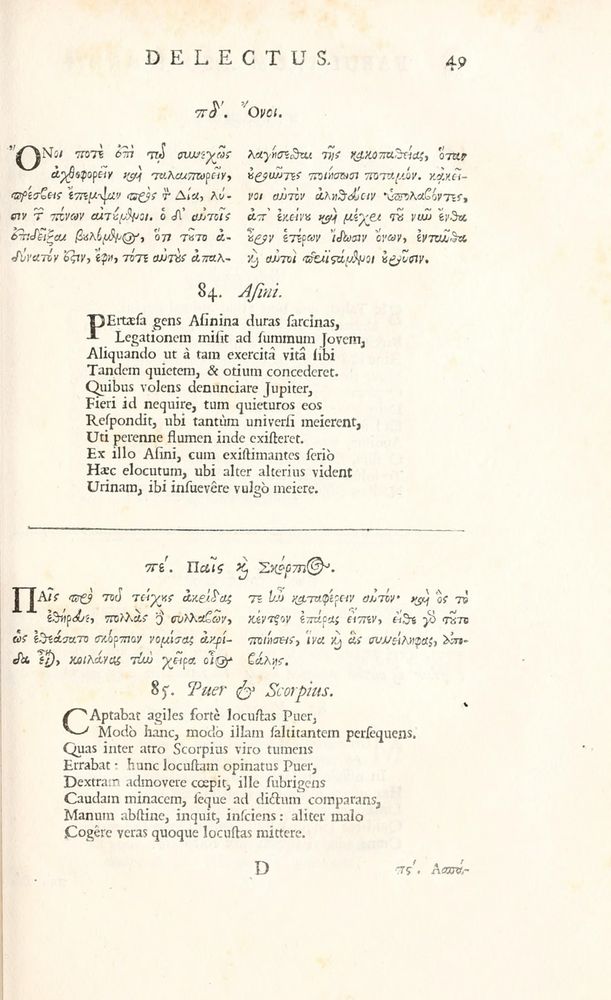 DELECTUS. 49
πδʹ. Ὄνοι.
ὌΝοι ποτὲ ἐπὶ τῷ συνεχῶς
ἀχθοφορεῖν καὶ ταλαιπωρεῖν,
πρέσβεις ἔπεμψαν πρὸς τὸν Δία, λύ-
σιν τῶν πόνων αἰτούμενοι. ὁ δ᾽ αὐτοῖς
ἐπιδεῖξαι βουλόμενος, ὅτι τοῦτο ἀ-
δύνατόν ἐστιν, ἔφη, τότε αὐτοὺς ἀπαλ-
λαγήσεσθαι τῆς κακοπαθείας, ὅταν
οὐροῦντες ποιήσωσι ποταμόν. κᾀκεῖ-
νοι αὐτὸν ἀληθεύειν ὑπολαβόντες,
ἀπ᾽ ἐκείνου καὶ μέχρι τοῦ νῦν ἔνθα
οὖρον ἑτέρων ἴδωσιν ὄνων, ἐνταῦθα
καὶ αὐτοὶ περιϊστάμενοι οὐροῦσιν.
84. Aſini.
PErtæſa gens Aſinina duras ſarcinas,
Legationem miſit ad ſummum Jovem,
Aliquando ut à tam exercitâ vitâ ſibi
Tandem quietem, & otium concederet.
Quibus volens denunciare Jupiter,
Fieri id nequire, tum quieturos eos
Reſpondit, ubi tantùm univerſi meierent,
Uti perenne flumen inde exiſteret.
Ex illo Aſini, cum exiſtimantes ſeriò
Hæc elocutum, ubi alter alterius vident
Urinam, ibi inſuevêre vulgò meiere.
πεʹ. Παῖς καὶ Σκόρπιος.
ΠΑῖς πρὸ τοῦ τείχους ἀκρίδας
ἐθήρευε, πολλὰς δὲ συλλαβὼν,
ὡς ἐθεάσατο σκόρπιον νομίσας ἀκρί-
δα εἶναι, κοιλάνας τὴν χεῖρα οἷος
τε ἦν καταφέρειν αὐτόν· καὶ ὃς τὸ
κέντρον ἐπάρας εἶπεν, εἴθε γὰρ τοῦτο
ποιήσεις, ἵνα καὶ ἃς συνείληφας, ἀπο-
βάλῃς.
85. Puer & Scorpius.
CAptabat agiles fortè locuſtas Puer,
Modò hanc, modò illam ſaltitantem perſequens.
Quas inter atro Scorpius viro tumens
Errabat: hunc locuſtam opinatus Puer,
Dextram admovere cœpit, ille ſubrigens
Caudam minacem, ſeque ad dictum comparans,
Manum abſtine, inquit, inſciens: aliter malo
Cogêre veras quoque locuſtas mittere.
D πϛʹ. Ασπά-